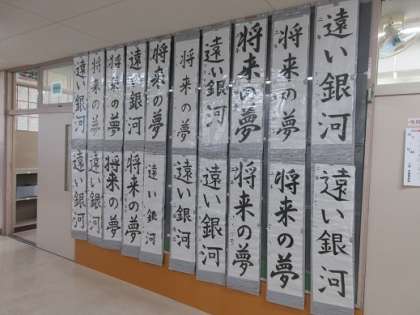 遠い銀河
将来の夢
将来の夢
遠い銀河
将来の夢
将来の夢
遠い銀河
将来の夢
将来の夢
遠い銀河
遠い銀河
将来の夢
将来の夢
遠い銀河
遠い銀河
遠い銀河
将来の夢
将来の夢
遠い銀河
遠い銀河